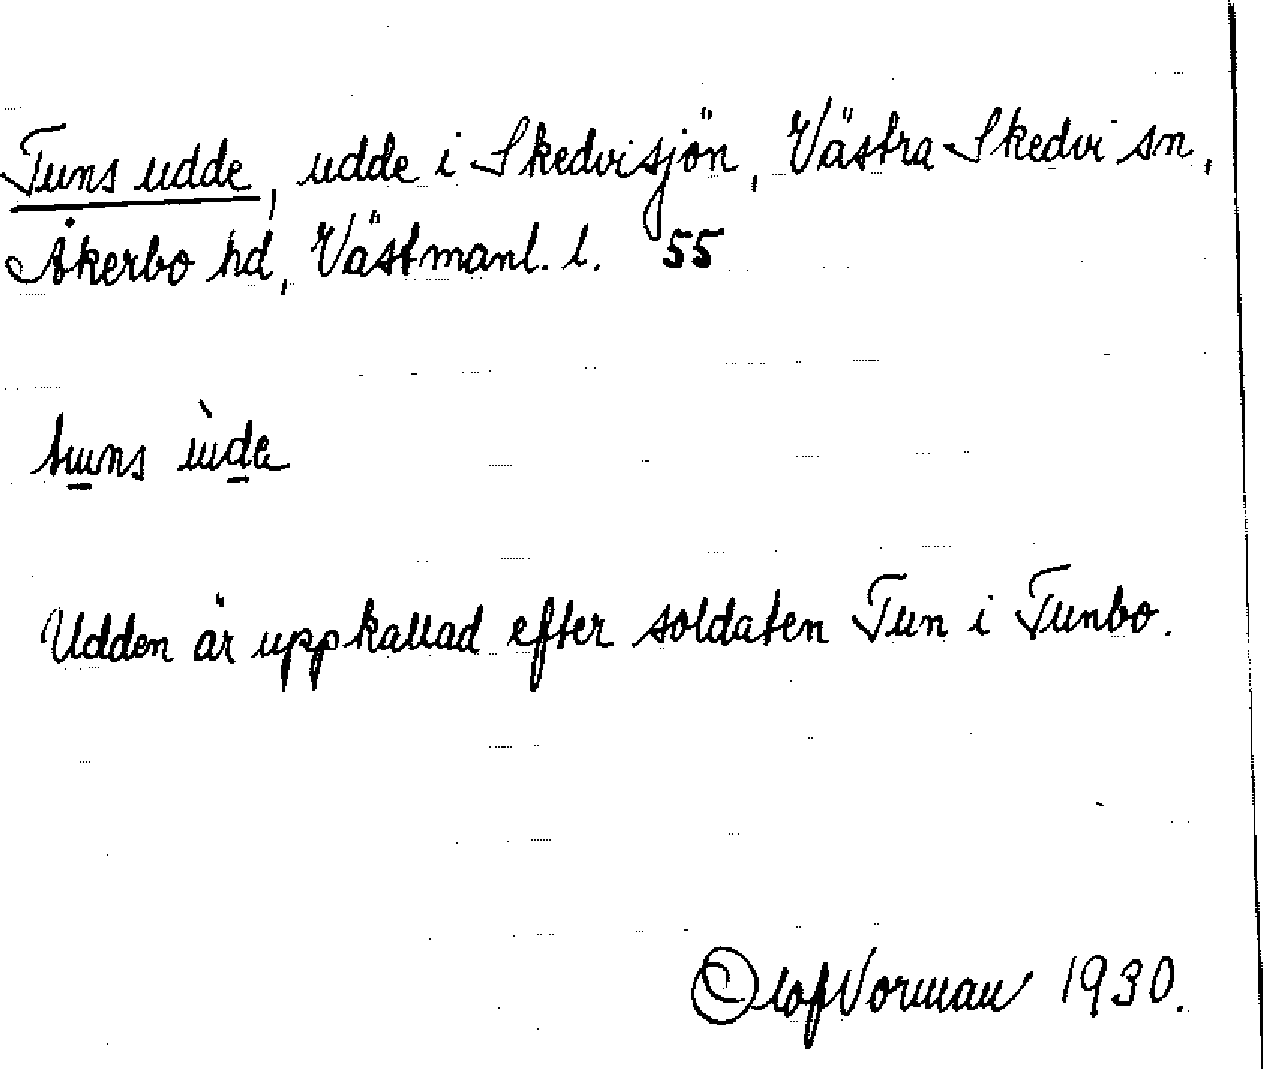 Tuns udde, udde i Skedvisjön, Västra Skedvi sn,
Åkerbo hd, Västmanl. l. 55
tuns ùda
Udden är uppkallad efter soldaten Tun i Tunbo.
Olof Vorman 1930.